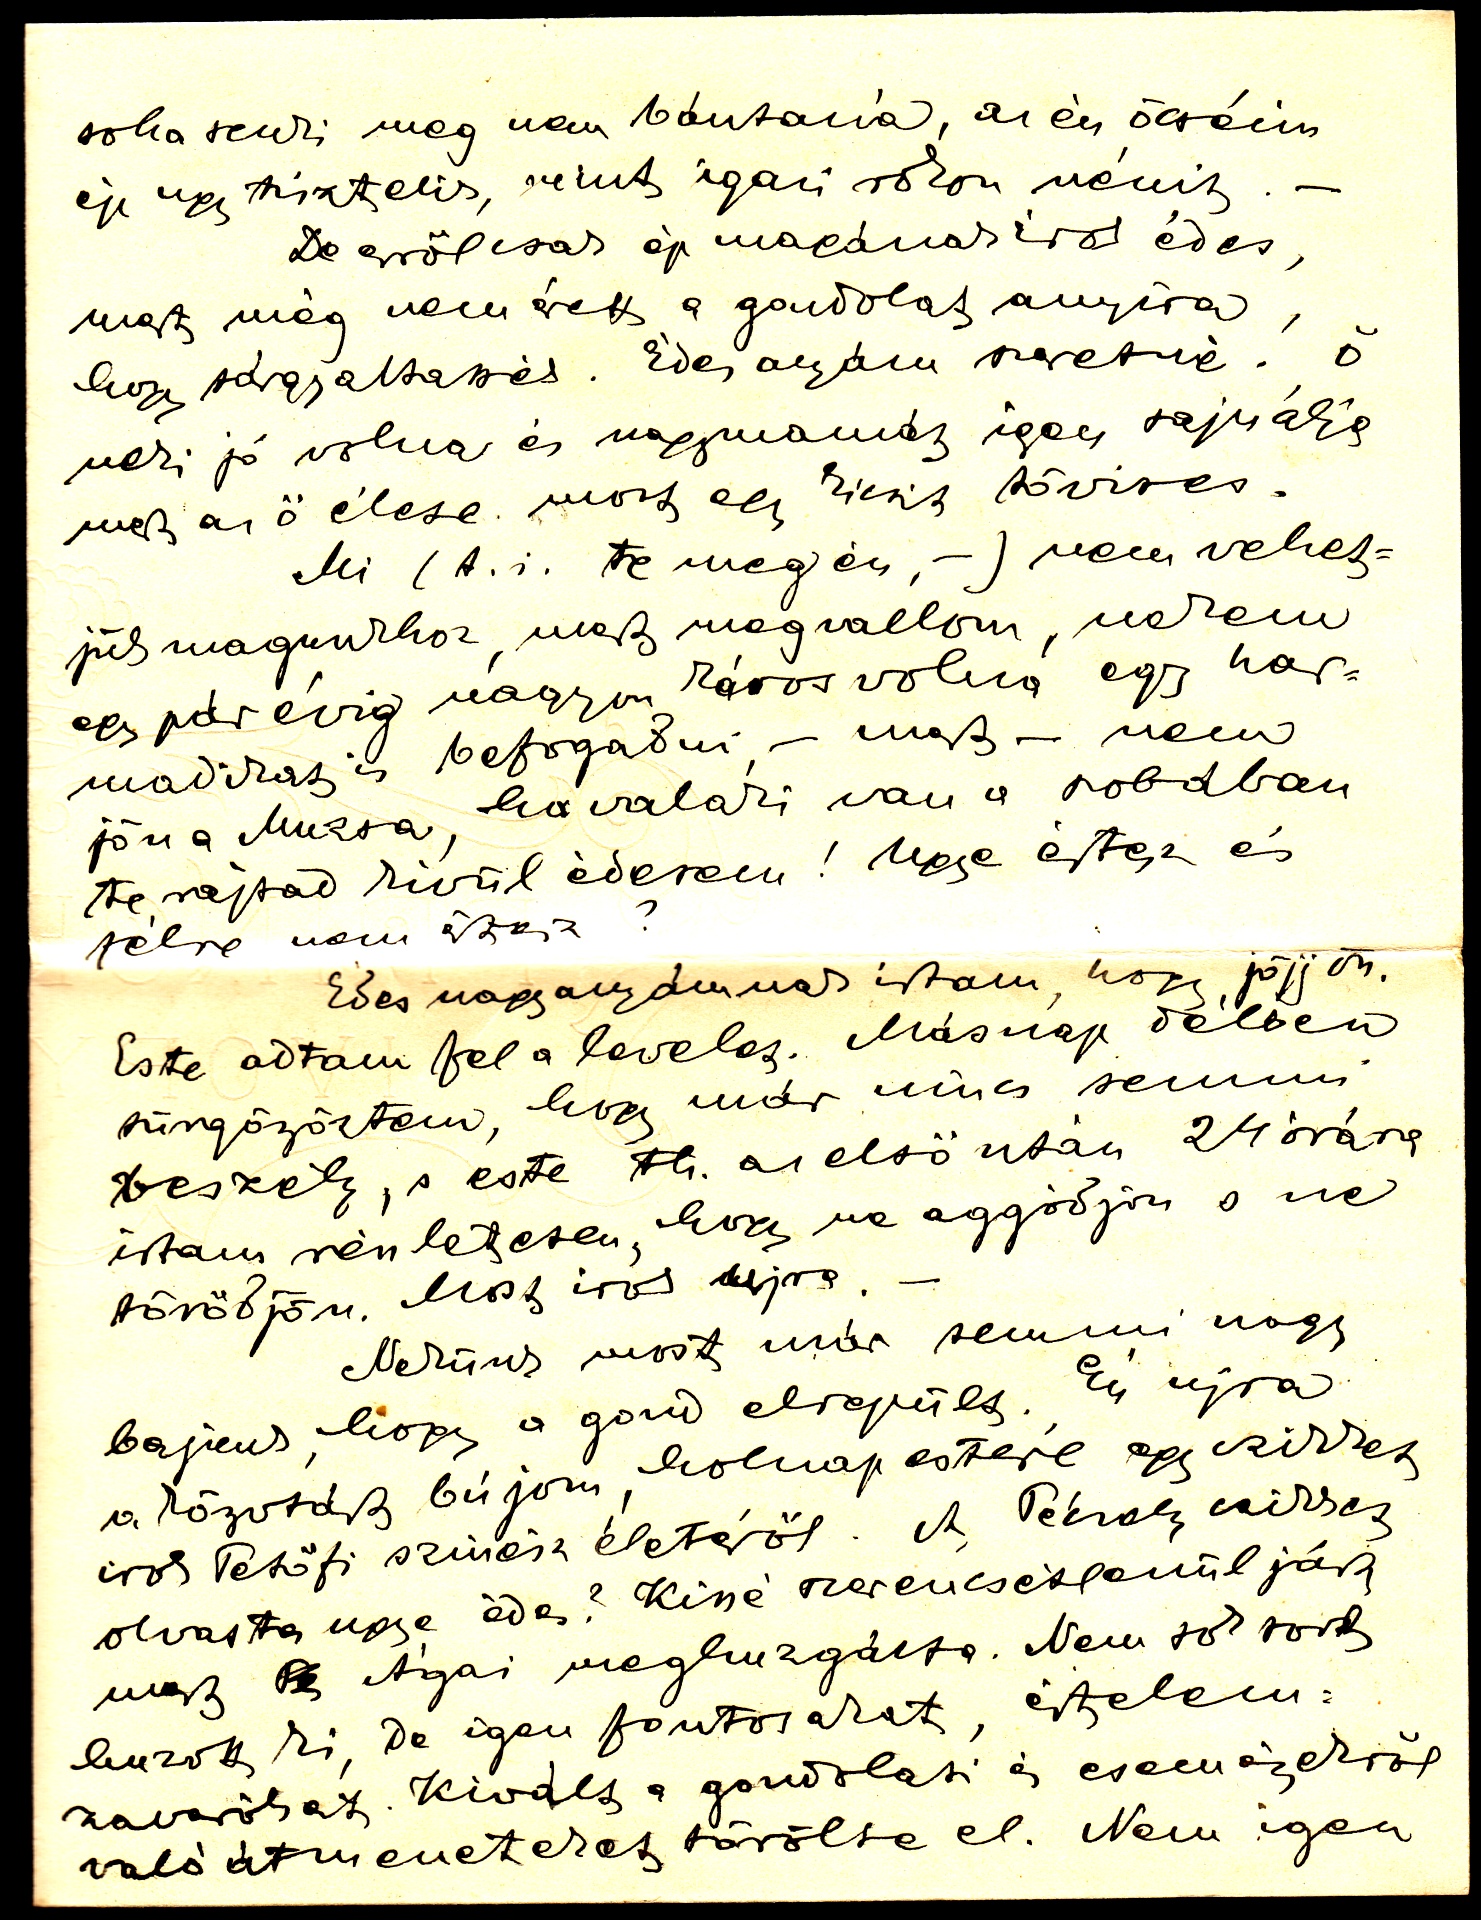 soha senki meg nem bántaná, az én öcséim
ép ugy tisztelik, mint igazi rokon nénit. –
De erről csak ép magának irok édes,
mert még nem érett a gondolat annyira,
hogy tárgyaltassék. Édes anyám szeretné. Ő
neki jó volna és nagymamát igen sajnálja
mert az ő élete most egy kicsit tövises.
Mi (t. i. te meg én, –) nem vehet=
jük magunkhoz, mert megvallom, nekem
egy pár évig nagyon káros volna egy har=
madikat is befogadni, – mert – nem
jön a Muzsa, ha valaki van a szobában
te rajtad kivül édesem! Ugye értesz és
félre nem értesz?
Édes nagyanyámnak irtam, hogy jöjjön.
Este adtam fel a levelet. Másnap délben
sürgönyöztem, hogy már nincs semmi
veszély, s este t.i. az első után 24 órára
irtam részletesen, hogy ne aggódjon s ne
törődjön. Most irok ujra. –
Nekünk most már semmi nagy
bajunk, hogy a gond elrepült. Én ujra
a könyvtárt bújom, holnap estére egy cikket
irok Petőfi szinész életéről. A Pékely cikket
olvasta ugye édes? Kissé szerencsétlenül járt
mert Ágai meghuzgálta. Nem sok sort
huzott ki, de igen fontosakat, értelem=
zavarókat. Kivált a gondolati és eseményekről
való átmeneteket törölte el. Nem igen